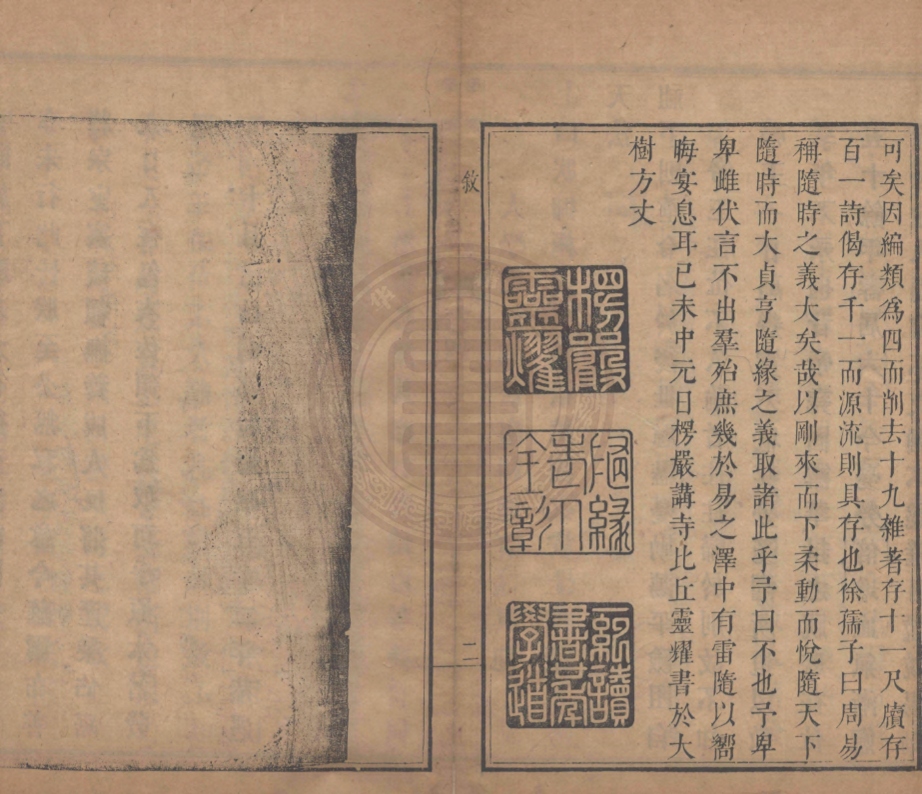 可矣因編類爲四而削去十九雜著存十一尺牘存
百一詩偈存千一而源流則具存也徐孺子曰周易
稱隨時之義大矣哉以剛來而下柔動而悅隨天下
隨時而大貞亨隨緣之義取諸此乎予曰不也予卑
卑雌伏言不出羣殆庶幾於易之澤中有雷隨以嚮
晦宴息耳已未中元日楞嚴講寺比丘靈耀書於大
樹方丈
楞嚴
靈燿
隨緣
老人
全彰
讀
書
學道
敘
二